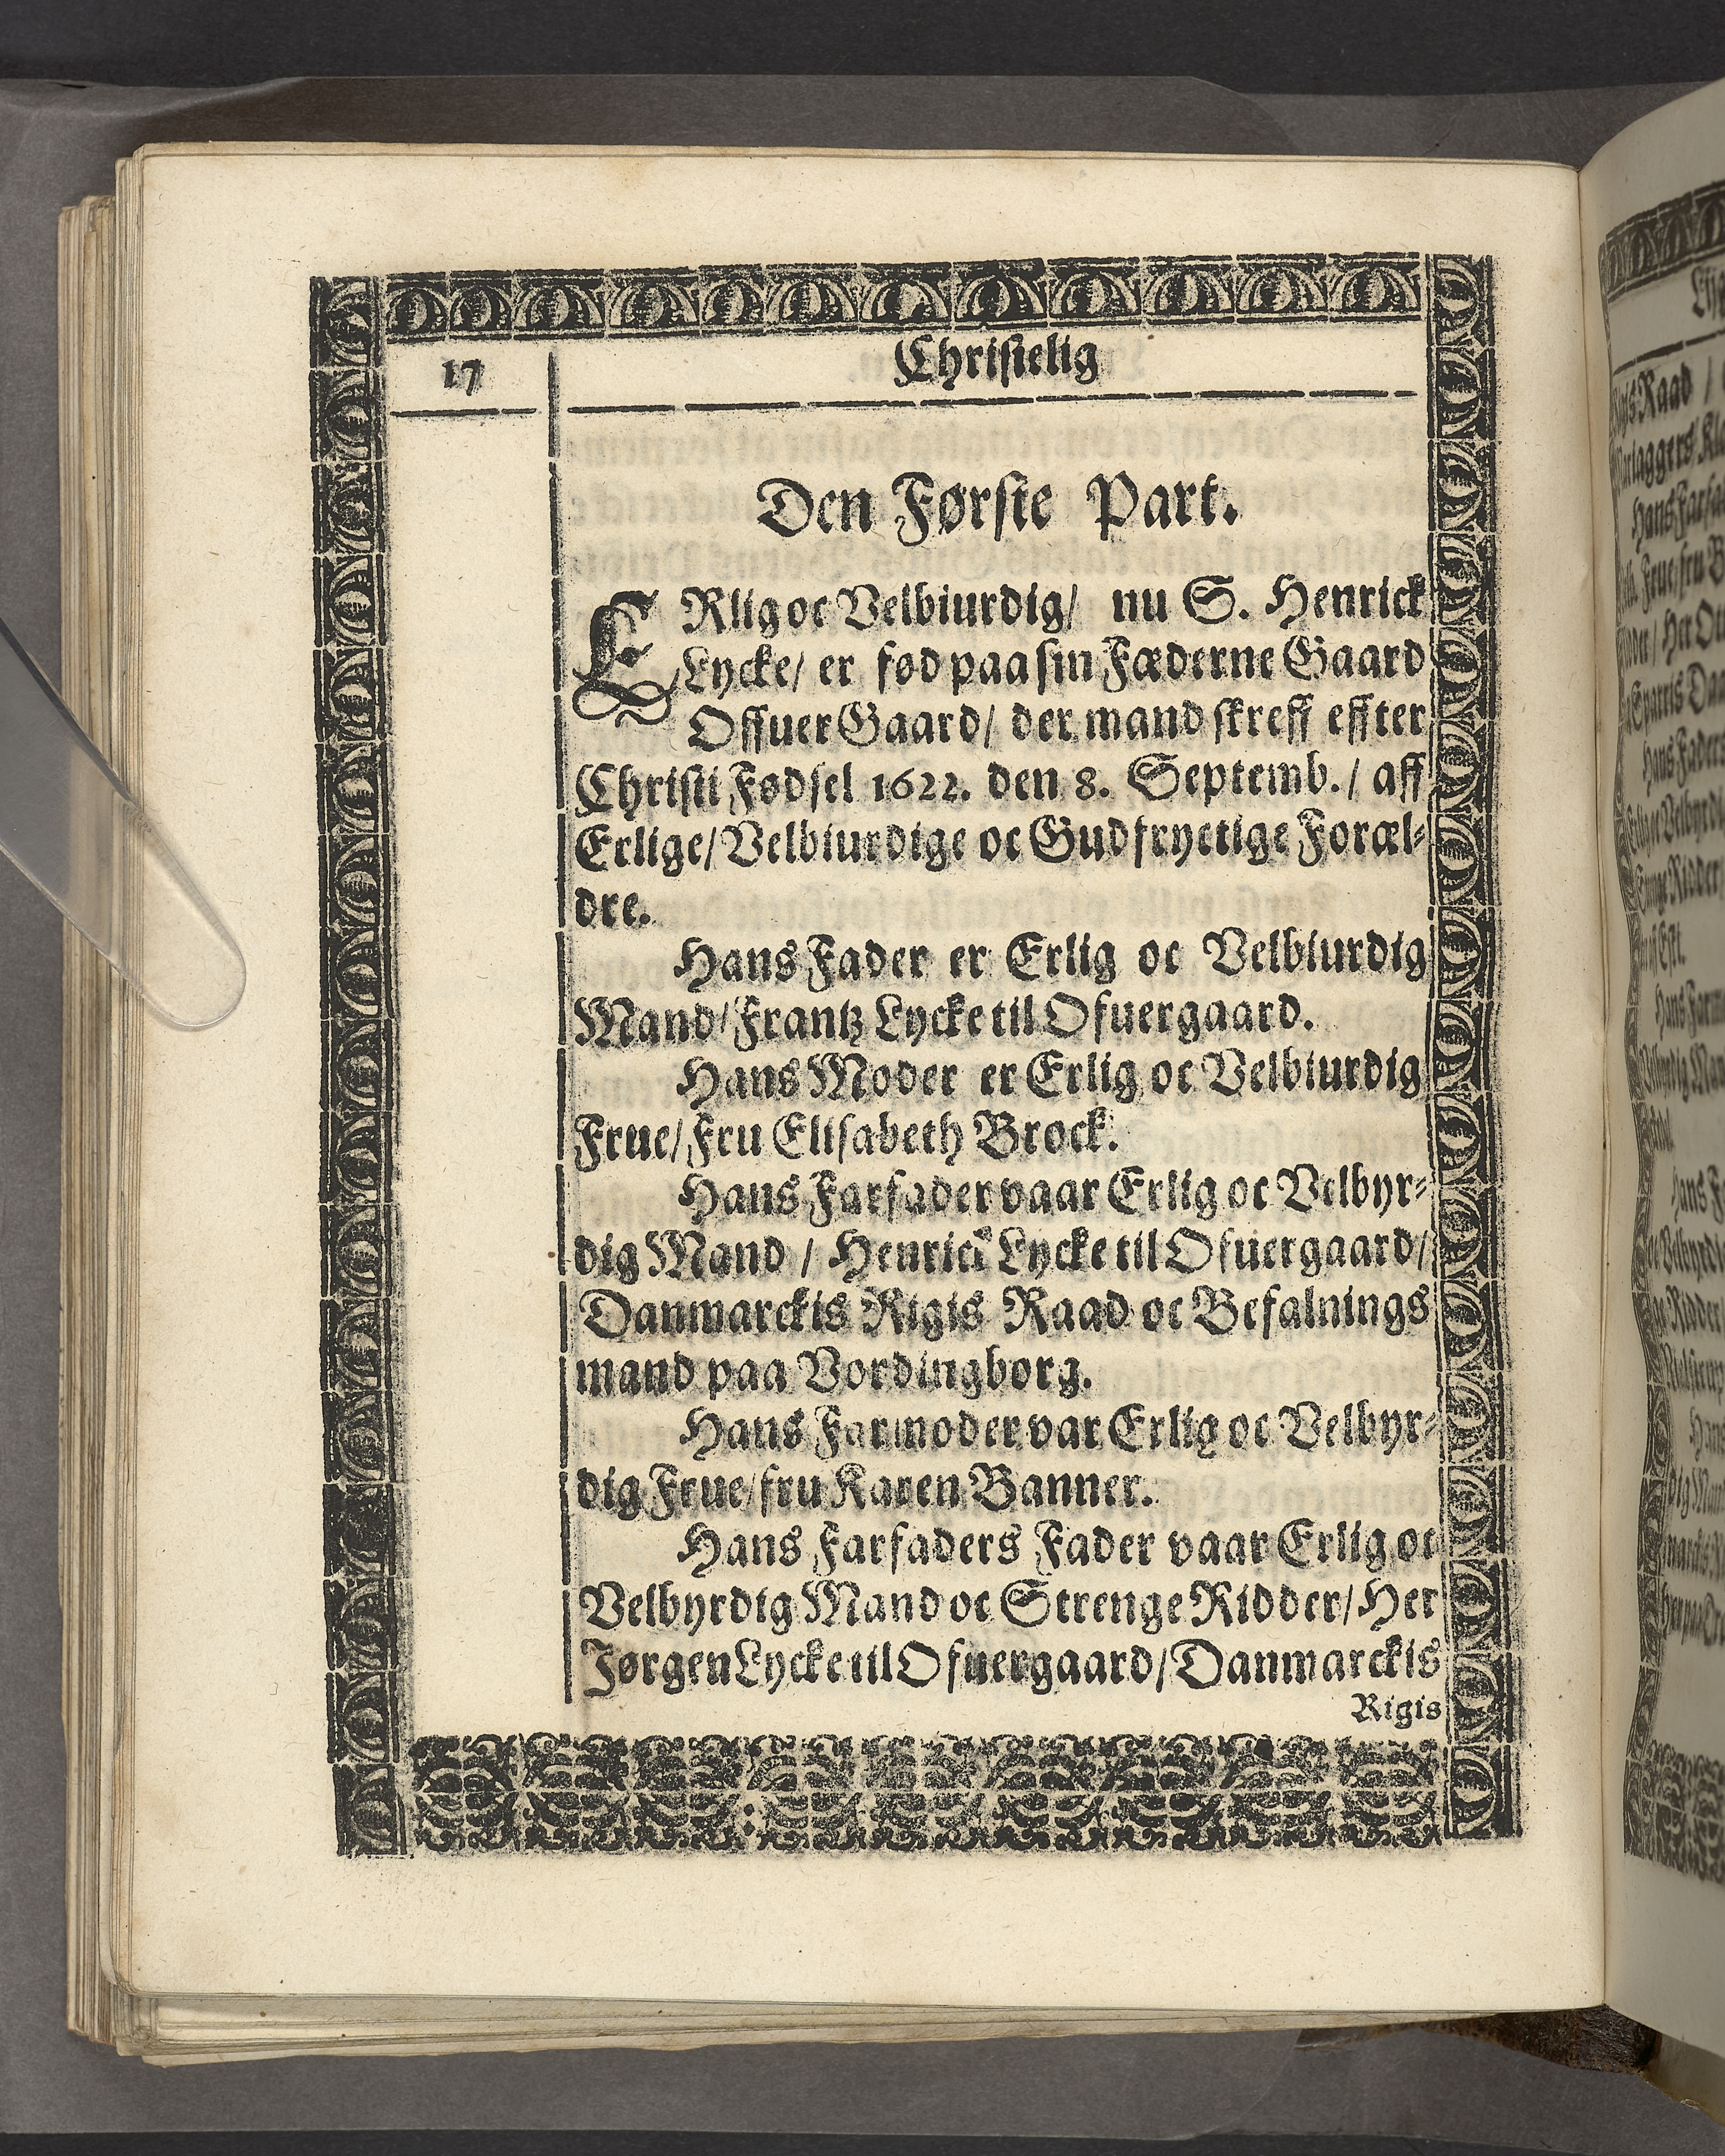 17
Christelig
Den Første Part.
ERlig oc Velbiurdig/ nu S. Henrick
Lycke/ er fød paa sin Fæderne Gaard
Offuer Gaard/ der mand skreff effter
Christi Fødsel 1622. den 8. Septemb. / aff
Erlige/ Velbiurdige oc Gudfryctige Foræl-
dre.
Hans Fader er Erlig oc Velbiurdig
Mand/ Frantz Lycke til Ofuergaard.
Hans Moder er Erlig oc Velbiurdig
Frue/ Fru Elisabeth Brock.
Hans Farfader vaar Erlig oc Velbyr-
dig Mand / Henrick Lycke til Ofuergaard/
Danmarckis Rigis Raad oc Befalnings
mand paa Vordingborg.
Hans Farmoder var Erlig oc Velbyr-
dig Frue/ fru Karen Banner.
Hans Farfaders Fader vaar Erlig oc
Velbyrdig Mand oc Strenge Ridder/ Her
Jørgen Lycke til Ofuergaard/ Danmarckis
Rigis